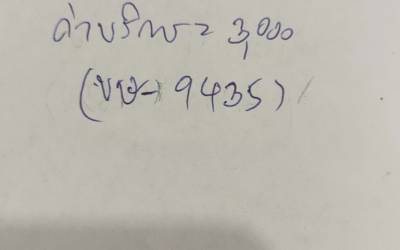 ค่าบริการ = 3,000
(ขษ - 9435)